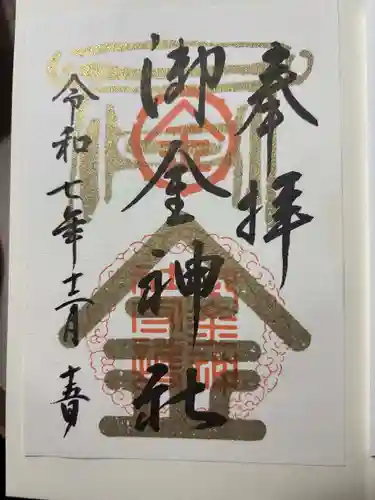 奉拝
御金神社
令和七年十二月十五日